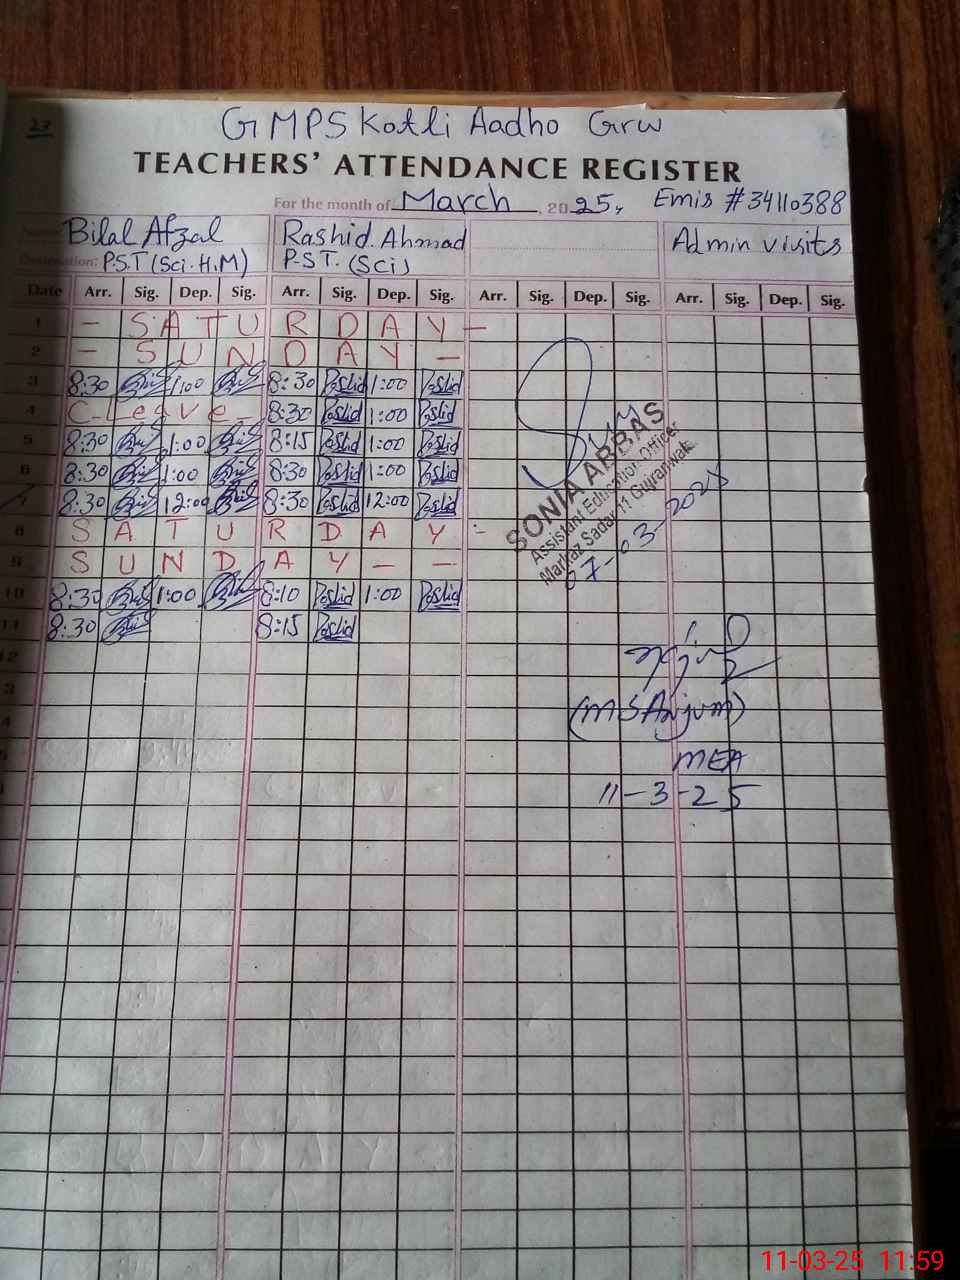 27
GMPS Kotli Aadho Grw
TEACHERS' ATTENDANCE REGISTER
For the month of March, 2025, Emis #34110388
Name: Bilal Afzal Rashid. Ahmad Admin visits
Designation: P.S.T (Sci. H.M) P.S.T. (Sci)
Date Arr. Sig. Dep. Sig. Arr. Sig. Dep. Sig. Arr. Sig. Dep. Sig. Arr. Sig. Dep. Sig.
1 - SATURDAY -
2 - SUNDAY -
3 8:30 1:00 8:30 1:00
4 C-Leave- 8:30 1:00
5 8:30 1:00 8:15 1:00
6 8:30 1:00 8:30 1:00
7 8:30 12:00 8:30 12:00
8 SATURDAY -
9 SUNDAY - -
10 8:30 1:00 8:10 1:00
11 8:30 8:15
12
3
4
SONIA ABBAS
Assistant Education Officer
Markaz Sadar 11 Gujranwala
07-03-2025
(M S Anjum)
MEA
11-3-25
11-03-25 11:59